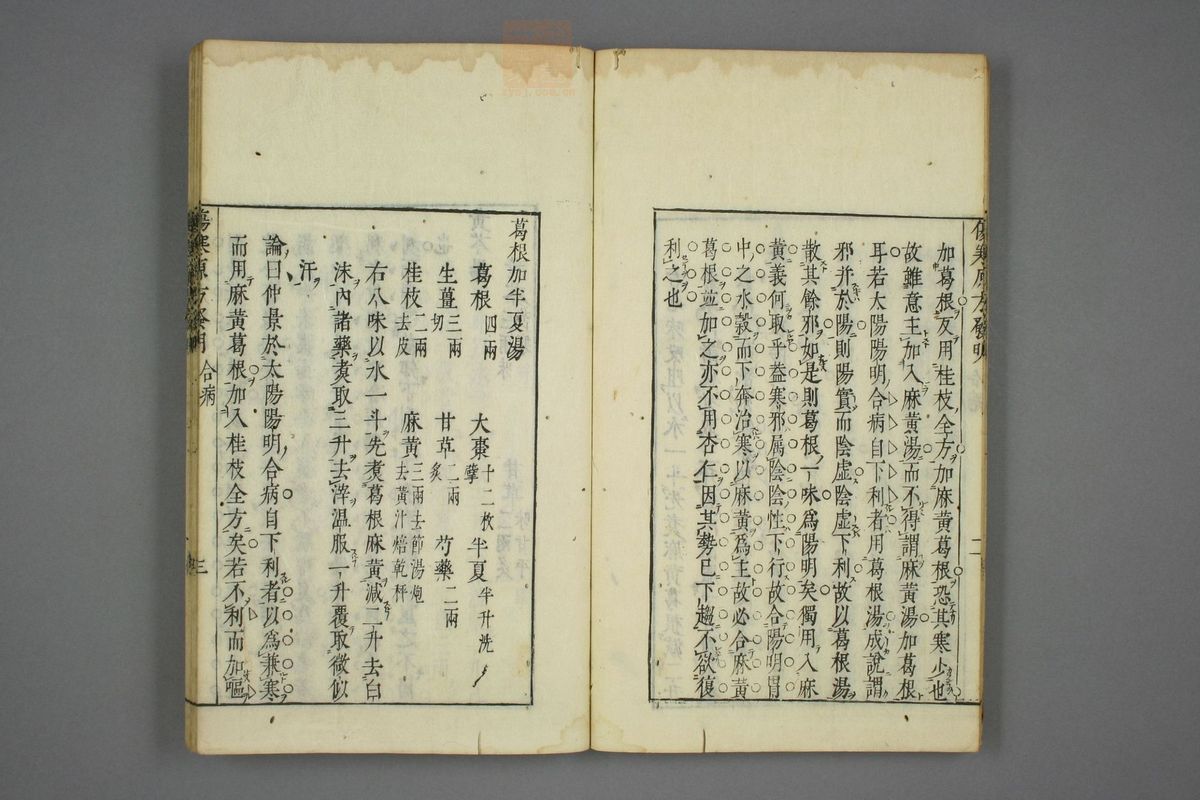 加葛根友用桂枝全方加麻黄葛根恐其寒少也
故雖意主加入麻黄湯而不得謂麻黄湯加葛根
耳若太陽陽明合病自下利者用葛根湯成說謂
邪并於陽則陽實而陰虛陰虛下利故以葛根湯
散其餘邪如是則葛根一味爲陽明矣獨用入麻
黄義何取乎葢寒邪属陰陰性下行故合陽明胃
中之水穀而下奔治寒以麻黄爲主故必合麻黄
葛根並加之亦不用杏仁因其勢已下趨不欲復
利之也
葛根加半夏湯
葛根四兩 大棗十二枚擘 半夏半升洗
生薑三兩切 甘草二兩炙 芍藥二兩
桂枝二兩去皮 麻黄三兩去節湯炮去黄汁焙乾秤
右八味以水一斗先煑葛根麻黄減二升去白
沫內諸藥煑取三升去滓温服一升覆取微似
汗
論曰仲景於太陽陽明合病自下利者以爲兼寒
而用麻黄葛根加入桂枝全方矣若不利而加嘔
合病
三